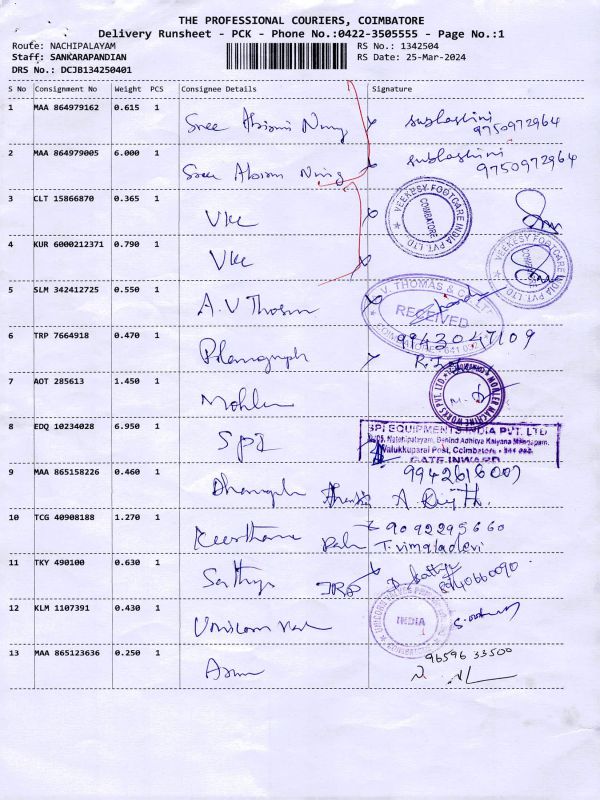 THE PROFESSIONAL COURIERS, COIMBATORE
Delivery Runsheet - PCK - Phone No.:0422-3505555 - Page No.:1
Route: NACHIPALAYAM RS No.: 1342504
Staff: SANKARAPANDIAN RS Date: 25-Mar-2024
DRS No.: DCJB134250401
S No Consignment No Weight PCS Consignee Details Signature
1 MAA 864979162 0.615 1 Sree Abirami Nursing
subhashini
9750972964
2 MAA 864979005 6.000 1 Sree Abirami Nursing
subhashini
9750972964
3 CLT 15866870 0.365 1 Vkc
VEEKESY FOOTCARE INDIA PVT. LTD
COIMBATORE
4 KUR 6000212371 0.790 1 Vkc
VEEKESY FOOTCARE INDIA PVT. LTD
5 SLM 342412725 0.550 1 A.V Thosm
V. THOMAS &
RECEIVED
6 TRP 7664918 0.470 1
9943047109
7 AOT 285613 1.450 1 Mohler
MOHLER MACHINE WORKS PVT. LTD
8 EDQ 10234028 6.950 1 SPI
SPI EQUIPMENTS INDIA PVT. LTD
Valukkuparai Post, Coimbatore
GATE INWARD
9 MAA 865158226 0.460 1
9942618007
10 TCG 40908188 1.270 1 Keerthana
9092295660
T. vimaladevi
11 TKY 490100 0.630 1 Sathya
12 KLM 1107391 0.430 1
INDIA
13 MAA 865123636 0.250 1 Arun
96596 33500